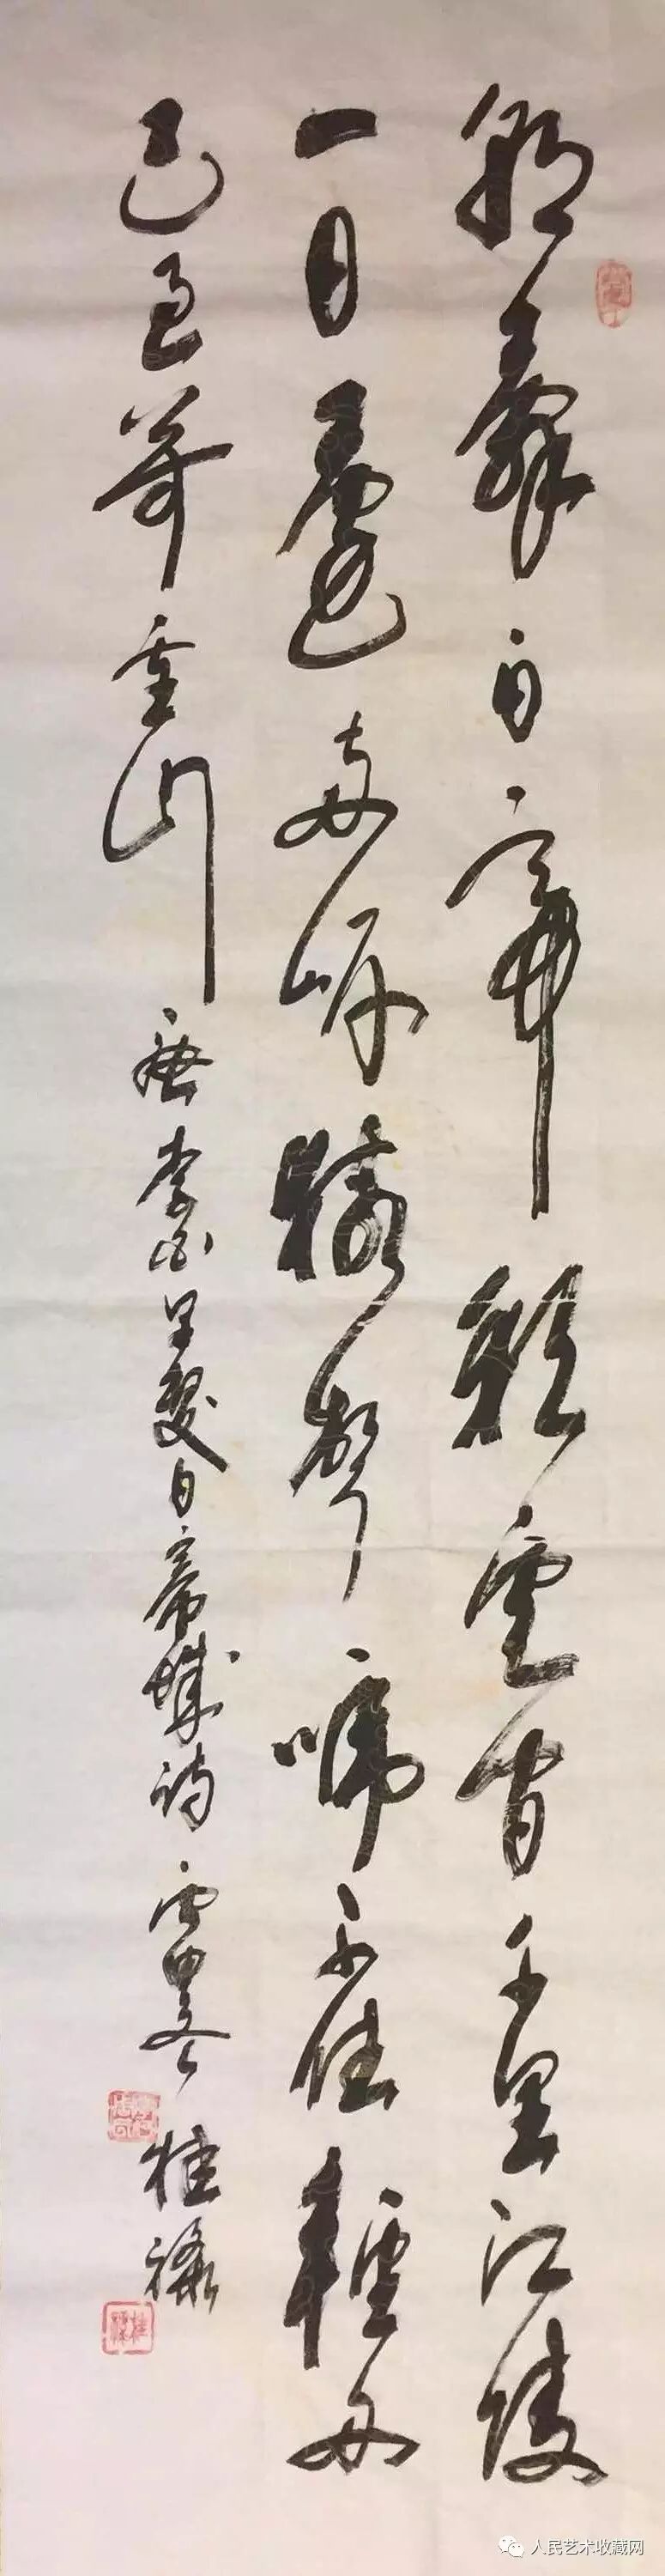 朝辞白帝彩雲间千里江陵
一日還两岸猿声啼不住輕舟
已过万重山 唐李白早發白帝城诗 雲墨 桂禄
人民艺术收藏网